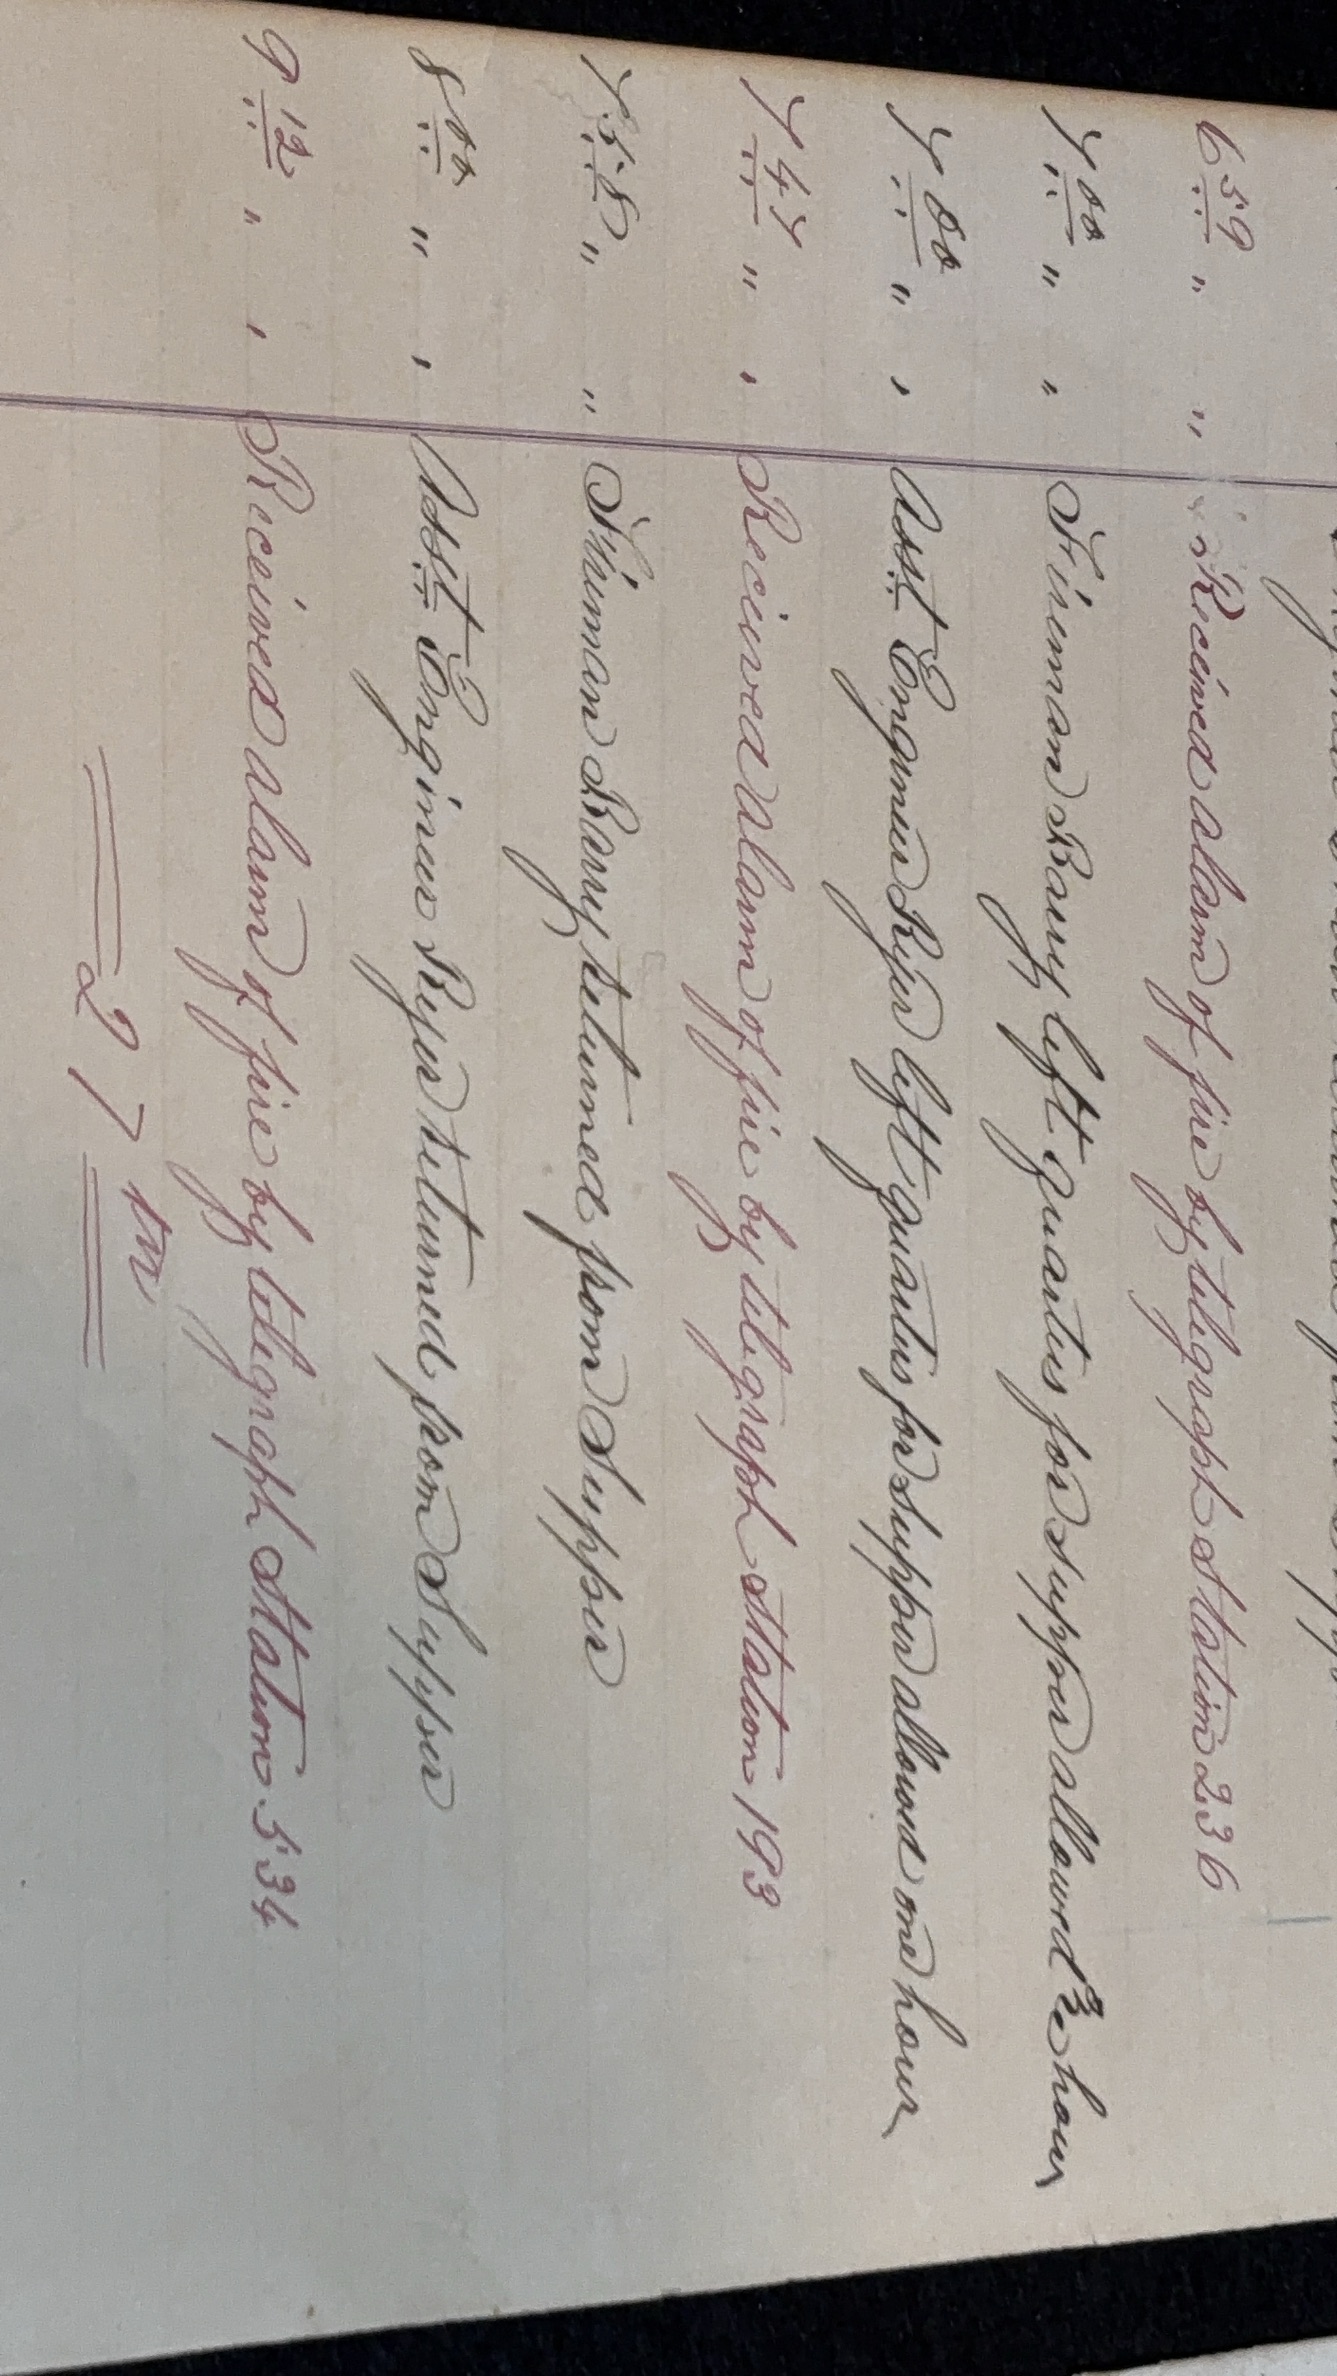 6 59 " " Received alarm of fire by telegraph Station 236
7 00 " " Fireman Barry left quarters for supper allowed 1 hour
7 00 " " Asst Engineer Ryer left quarters for supper allowed one hour
7 47 " " Received alarm of fire by telegraph Station 193
7 58 " " Fireman Barry returned from Supper
8 00 " " Asst Engineer Ryer returned from Supper
9 12 " " Received alarm of fire by telegraph Station 534
27